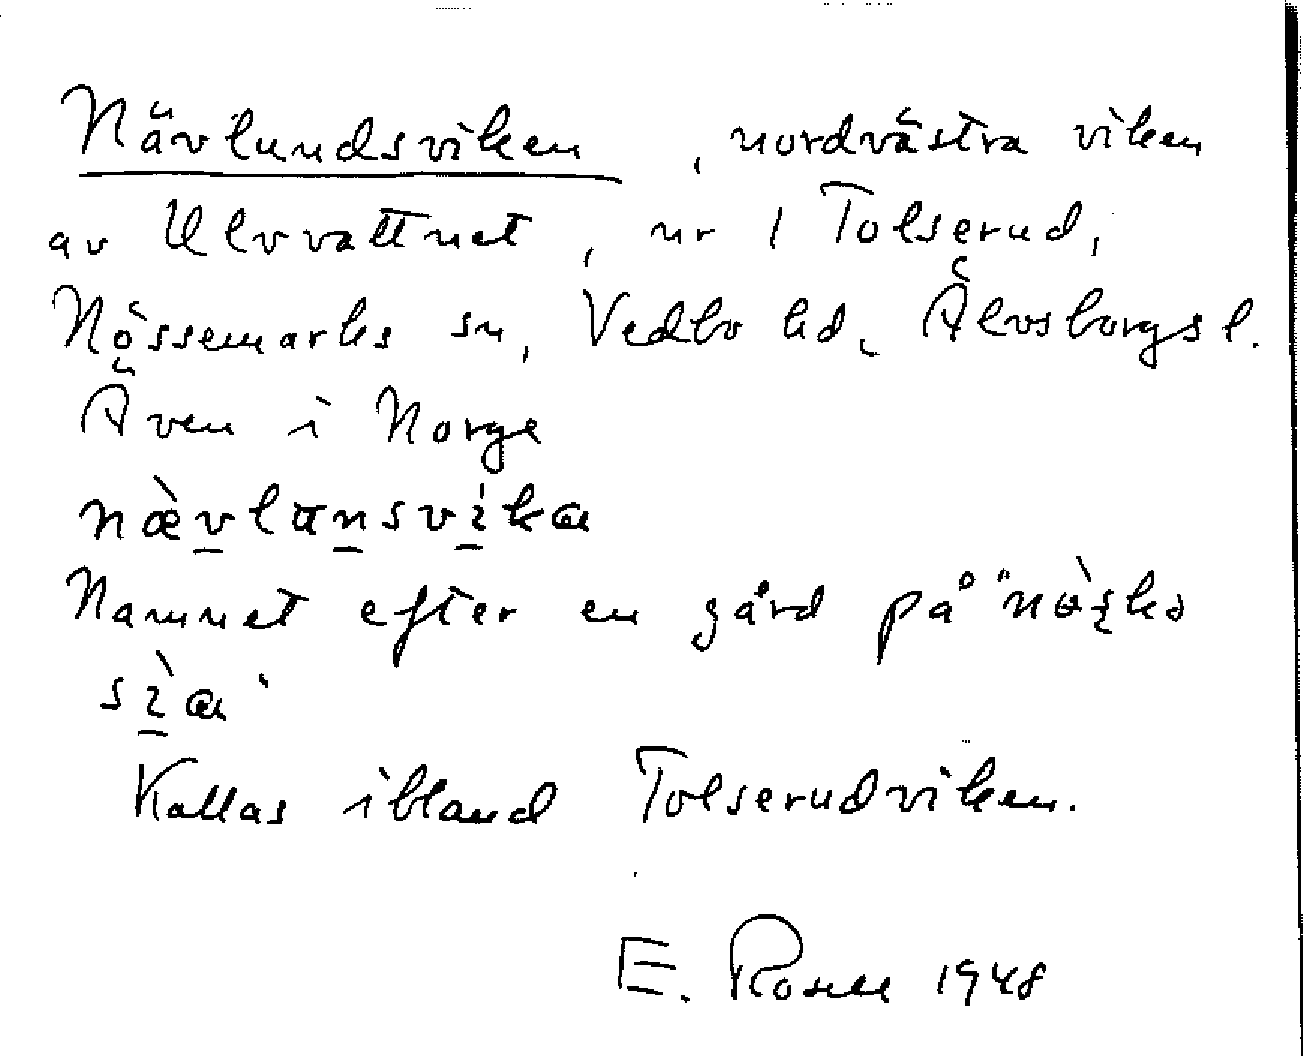 Nävlundsviken, nordvästra viken
av Ulvvattnet, nr 1 Tolserud,
Nössemarks sn, Vedbo hd, Älvsborgs l.
Även i Norge
nævlansvika
Namnet efter en gård på "
sìa"
Kallas ibland Tolserudviken.
E. Rosell 1948